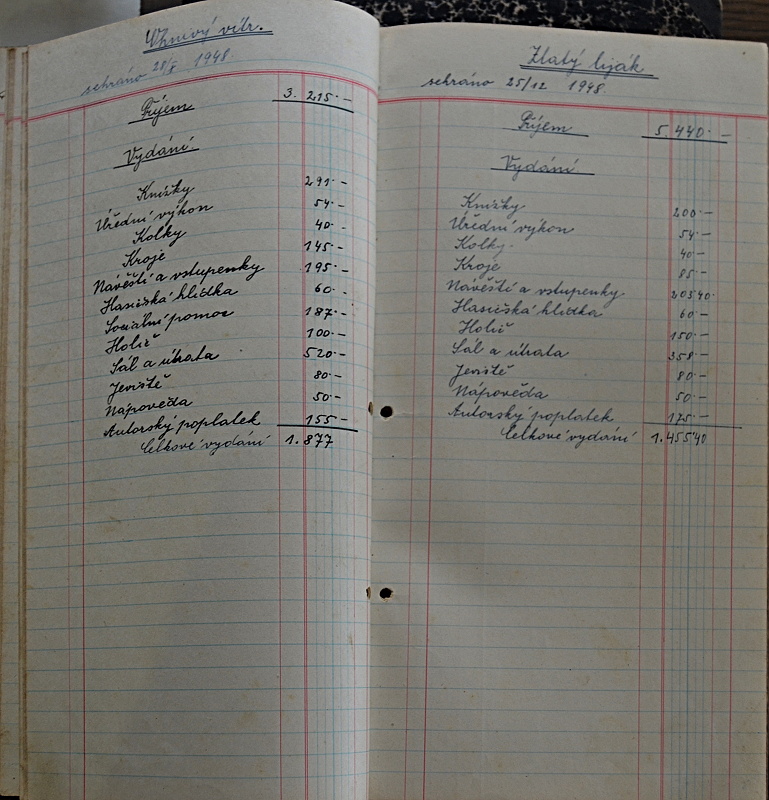 Vlnivý vítr.
sehráno 28/8 1948
Příjem 3.215·–
Vydání
Knížky 291·–
Úřední výkon 54·–
Kolky 40·–
Kroje 145·–
Návěští a vstupenky 195·–
Hasičská hlídka 60·–
Sociální pomoc 187·–
Holič 100·–
Sál a útrata 520·–
Jeviště 80·–
Nápověda 50·–
Autorský poplatek 155·–
Celkové vydání 1.877
Zlatý liják
sehráno 25/12 1948.
Příjem 5.440·–
Vydání
Knížky 200·–
Úřední výkon 54·–
Kolky 40·–
Kroje 85·–
Návěští a vstupenky 203'40
Hasičská hlídka 60·–
Holič 150·–
Sál a útrata 358·–
Jeviště 80·–
Nápověda 50·–
Autorský poplatek 175·–
Celkové vydání 1.455'40